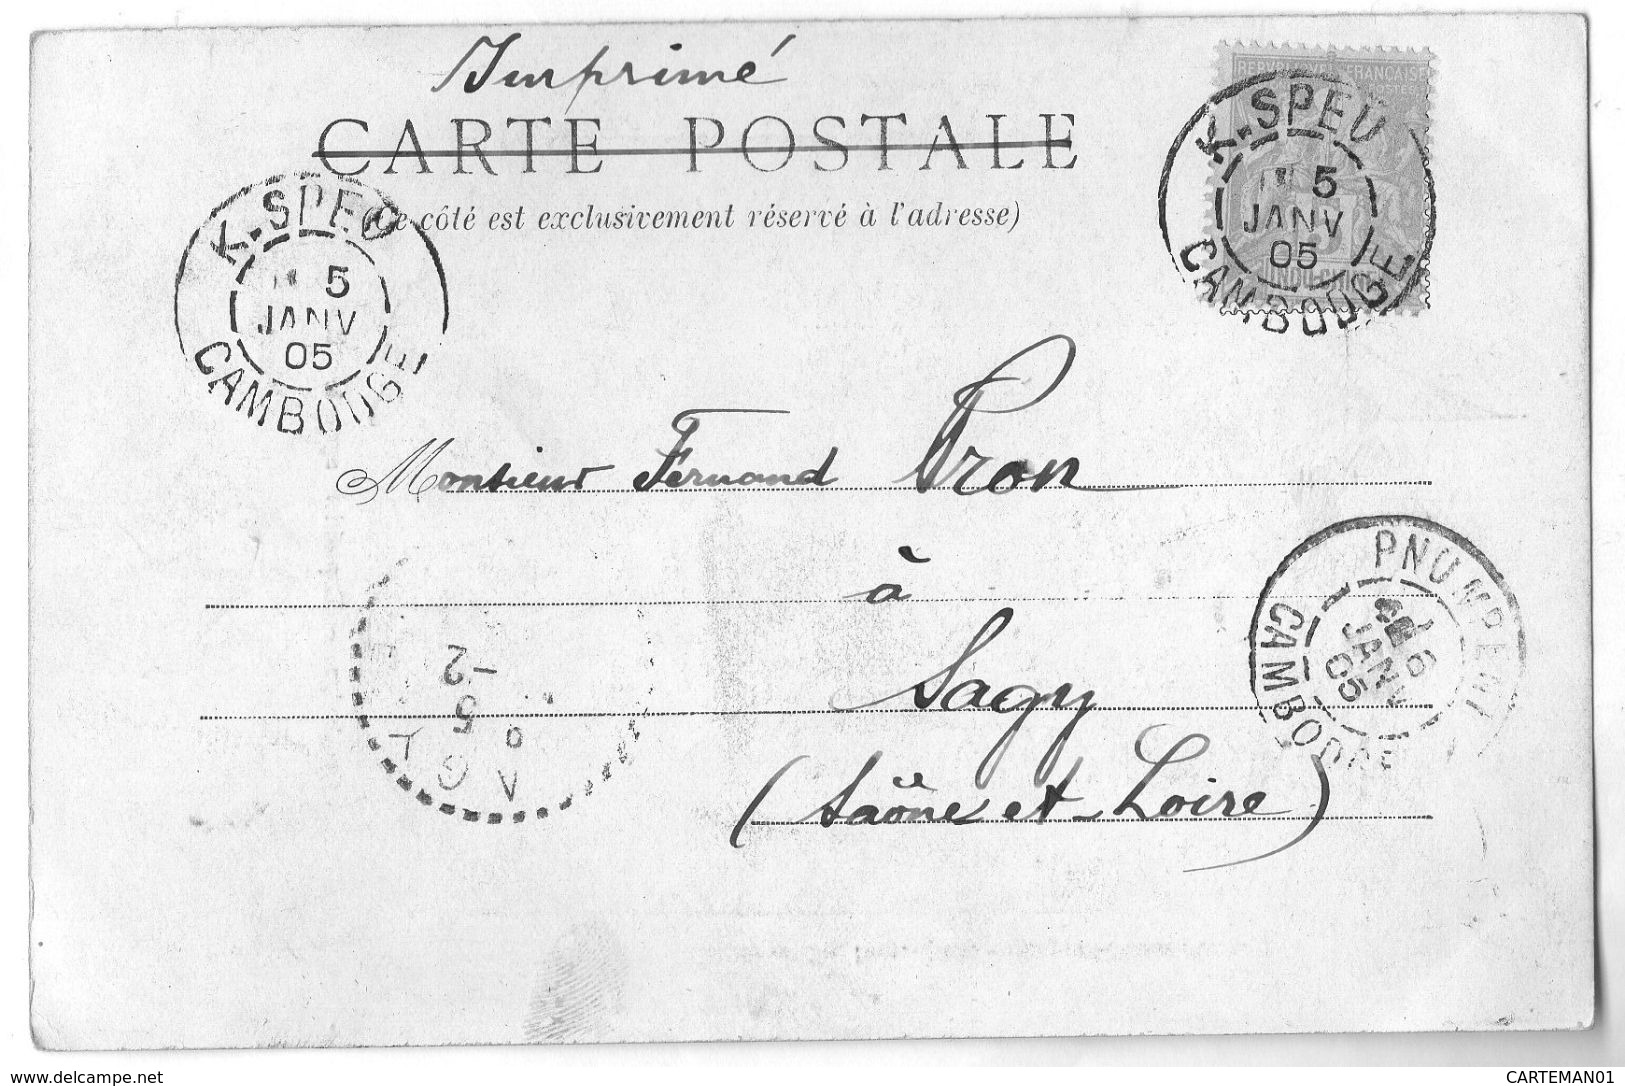 Imprimé
CARTE POSTALE
(Ce côté est exclusivement réservé à l'adresse)
K-SPEU
5
JANV
05
CAMBODGE
REPUBLIQUE FRANÇAISE
POSTES
INDO-CHINE
K-SPEU
5
JANV
05
CAMBODGE
Monsieur Fernand Pron
à
Sagy
(Saône et-Loire)
PNUMPENH
6
JANV
05
CAMBODGE
AGY
-2
5
www.delcampe.net
CARTEMAN01